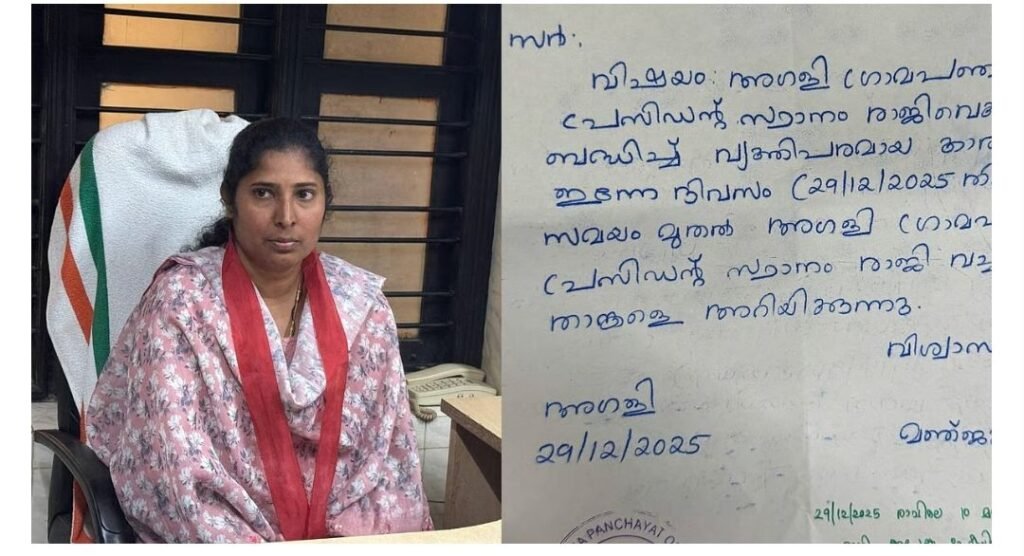 സർ:,
വിഷയം: അഗളി ഗ്രാമപഞ്ച
പ്രസിഡന്റ് സ്ഥാനം രാജിവെക
ബന്ധിച്ച് വ്യക്തിപരമായ കാര
ഇന്നേ ദിവസം (29/12/2025 തീ
സമയം മുതൽ അഗളി ഗ്രാമപ
പ്രസിഡന്റ് സ്ഥാനം രാജി വച്ച
താങ്കളെ അറിയിക്കുന്നു.
വിശ്വാസ
അഗളി
29/12/2025 മഞ്ജു
PANCHAYAT O
29/12/2025 രാവിലെ 10 മ